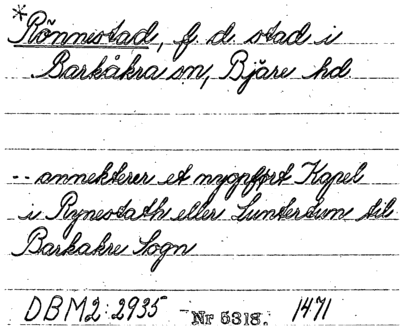 *Rönnestad, f. d. stad i
Barkåkra sn, Bjäre hd.
-- annekterer et nyopført Kapel
i Rynestath eller Luntertun til
Barkakre Sogn
DBM2:2935 Nr 5318. 1471